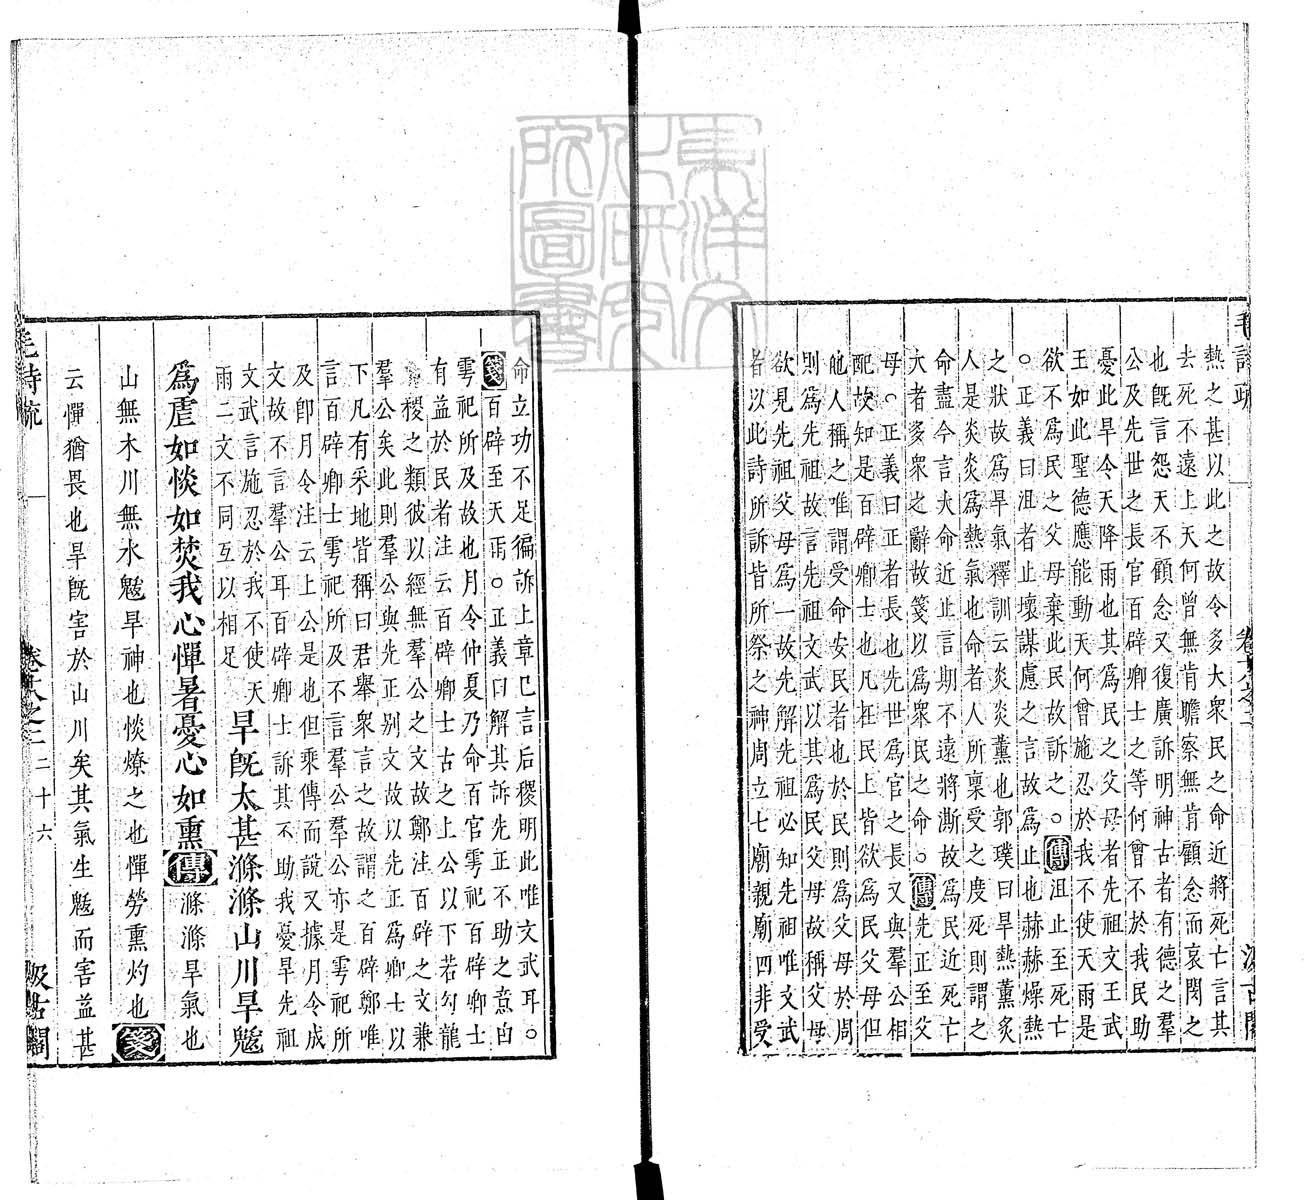 毛詩疏 卷十八之二 汲古閣
熱之甚以此之故令多大衆民之命近將死亡言其
去死不遠上天何曾無肯瞻察無肯顧念而哀閔之
也旣言怨天不顧念又復廣訴明神古者有德之羣
公及先世之長官百辟卿士之等何曾不於我民助
憂此旱令天降雨也其爲民之父母者先祖文王武
王如此聖德應能動天何曾施忍於我不使天雨是
欲不爲民之父母棄此民故訴之。傳沮止至死亡
。正義曰沮者止壞謀慮之言故爲止也赫赫燥熱
之狀故爲旱氣釋訓云炎炎薰也郭璞曰旱熱薰炙
人是炎炎爲熱氣也命者人所稟受之度死則謂之
命盡今言大命近止言期不遠將漸故爲民近死亡
大者多衆之辭故箋以爲衆民之命。傳先正至父
母。正義曰正者長也先世爲官之長又與羣公相
配故知是百辟卿士也凡在民上皆欲爲民父母但
他人稱之唯謂受命安民者也於民則爲父母於周
則爲先祖故言先祖文武以其爲民父母故稱父母
欲見先祖父母爲一故先解先祖必知先祖唯文武
者以此詩所訴皆所祭之神周立七廟親廟四非受
命立功不足徧訴上章已言后稷明此唯文武耳。
箋百辟至天雨。正義曰解其訴先正不助之意由
雩祀所及故也月令仲夏乃命百官雩祀百辟卿士
有益於民者注云百辟卿士古之上公以下若句龍
稷之類彼以經無羣公之文故鄭注百辟之文兼
羣公矣此則羣公與先正别文故以先正爲卿士以
下凡有采地皆稱曰君舉衆言之故謂之百辟鄭唯
言百辟卿士雩祀所及不言羣公羣公亦是雩祀所
及卽月令注云上公是也但乘傳而說又據月令成
文故不言羣公耳百辟卿士訴其不助我憂旱先祖
文武言施忍於我不使天
雨二文不同互以相足
旱旣太甚滌滌山川旱魃
爲虐如惔如焚我心憚暑憂心如熏傳滌滌旱氣也
山無木川無水魃旱神也惔燎之也憚勞熏灼也箋
云憚猶畏也旱旣害於山川矣其氣生魃而害益甚
毛詩疏 卷十八之二 二十六 汲古閣
東洋文化研究所圖書